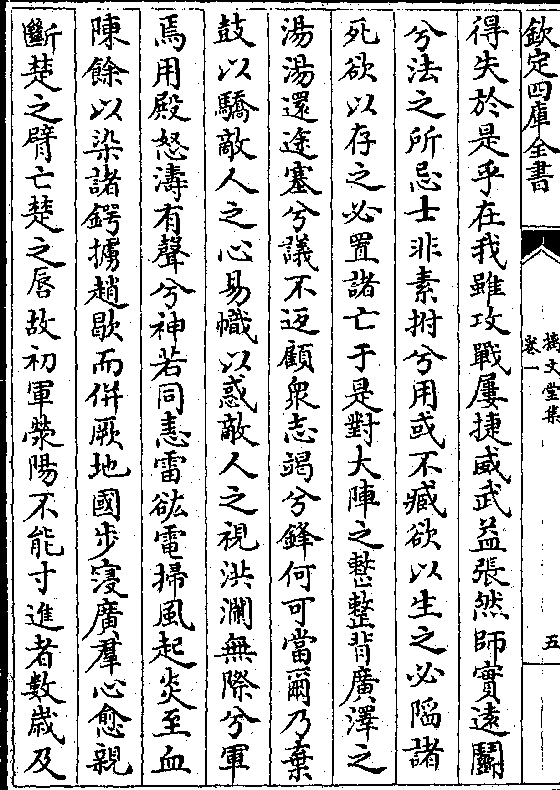 欽定四庫全書
摛文堂集
卷一
五
得失於是乎在我雖攻戰屢捷威武益張然師實遠鬬
兮法之所忌士非素拊兮用或不臧欲以生之必陷諸
死欲以存之必置諸亡于是對大陣之整整背廣澤之
湯湯還途塞兮議不返顧衆志竭兮鋒何可當爾乃棄
鼓以驕敵人之心易幟以惑敵人之視洪瀾無際兮軍
焉用殿怒濤有聲兮神若同恚雷欱電掃風起炎至血
陳餘以染諸鍔擄趙歇而併厥地國步寖廣羣心愈親
斷楚之臂亡楚之唇故初軍滎陽不能寸進者數歲及